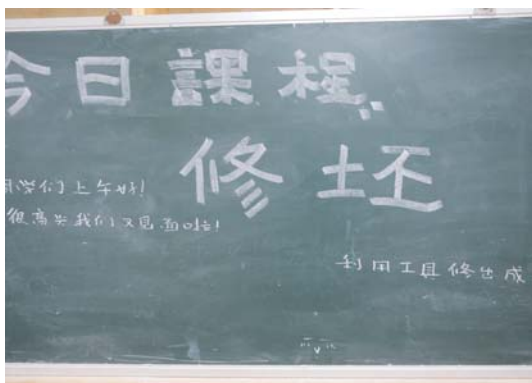 今日課程
修坯
同学们上午好!
很高兴我们又见面啦!
利用工具修出成